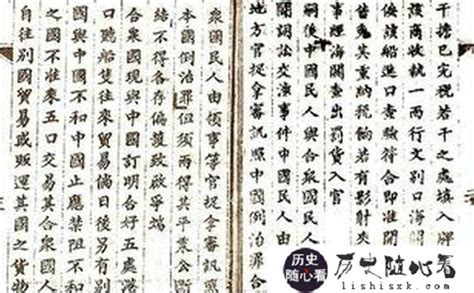 干擔已完税若干之處填入牌
該商收執一面行文別口海關
俟該船進口查照符合即准開
皆免其重納税餉若有影射夾
事經海關查出罰貨入官
嗣後中國民人與合衆國民人
鬭詞訟交涉事件中國民人由
地方官捉拿審訊照中國例治罪合
衆國民人由領事等官捉拿審訊照
本國例治罪但須兩得其平秉公斷
結不得各存偏護致啟爭端
合衆國現與中國訂明好五處港
口聽船隻往來貿易倘日後另有別
國與中國不和中國止應禁阻不和
之國不准來五口交易其合衆國人
自往別國貿易或販運其國之貨物
历史
随心看
历史随心看
lishisxk.com